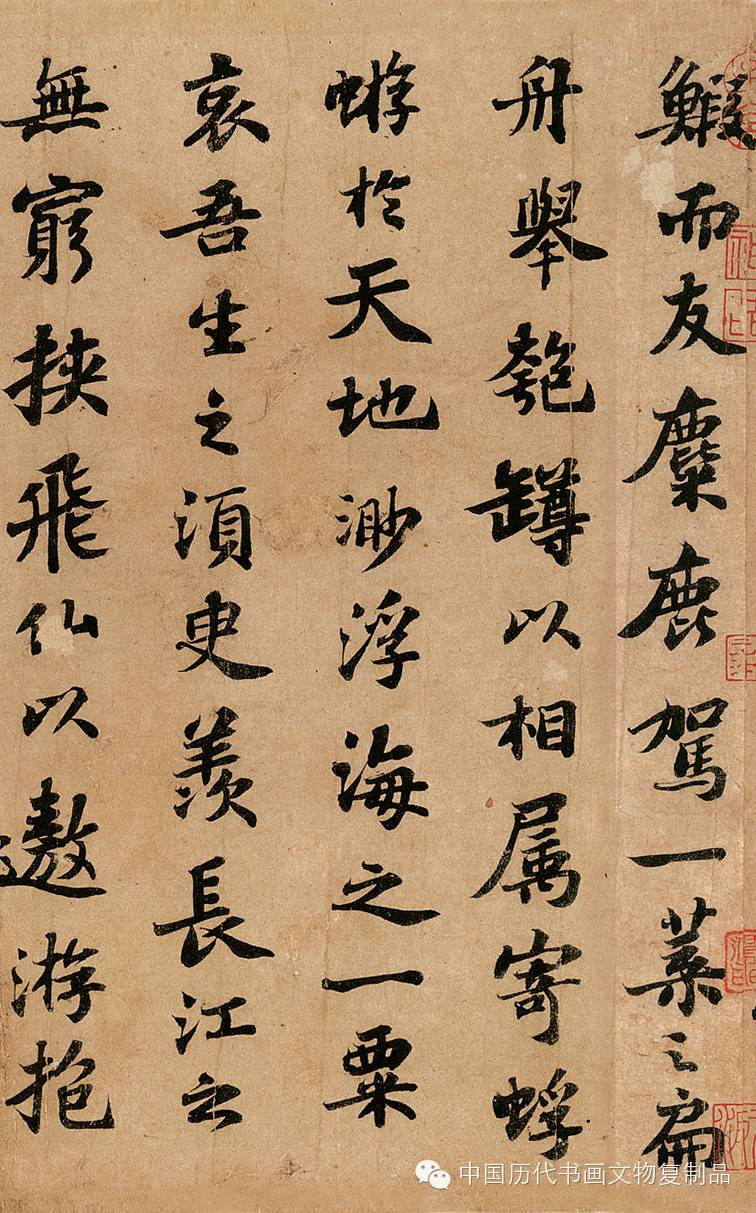 鰕而友麋鹿駕一葉之扁
舟舉匏罇以相属寄蜉
蝣於天地渺浮海之一粟
哀吾生之須臾羨長江之
無窮挾飛仙以遨游抱
中国历代书画文物复制品